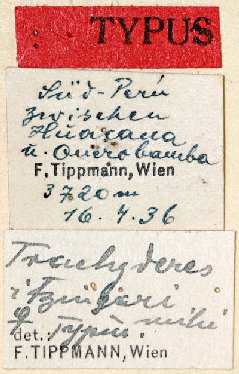 TYPUS
Süd-Perú
zwischen
Huacana
u. Querobamba
F. Tippmann, Wien
3720 m
16.4.36
Trachyderes
Typus mihi
det.:
F. TIPPMANN, Wien